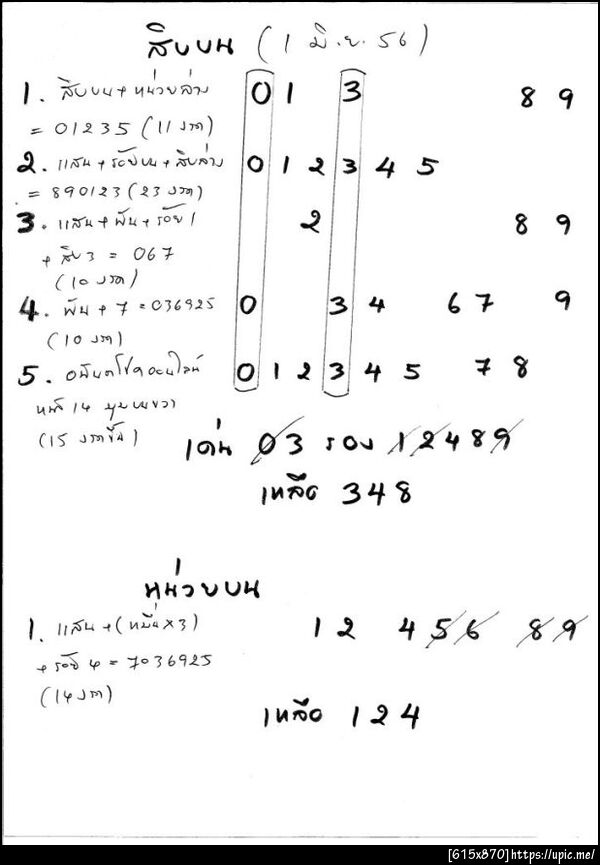 สิบบน (1 มิ.ย. 56)
1. สิบบน + หน่วยล่าง 0 1 3 8 9
= 01235 (11 งวด)
2. แสน + ร้อยบน + สิบล่าง 0 1 2 3 4 5
= 890123 (23 งวด)
3. แสน + พัน + ร้อย 1 2 8 9
+ สิบ 3 = 067
(10 งวด)
4. พัน + 7 = 036925 0 3 4 6 7 9
(10 งวด)
5. อนันตโชคออนไลน์ 0 1 2 3 4 5 7 8
หน้า 14 มุมบนขวา
(15 งวดขึ้น)
เด่น 0 3 รอง 1 2 4 8 9
เหลือ 3 4 8
หน่วยบน
1. แสน + (หมื่น × 3) 1 2 4 5 6 8 9
+ ร้อย 4 = 7036925
(14 งวด)
เหลือ 1 2 4
[615x870]https://upic.me/